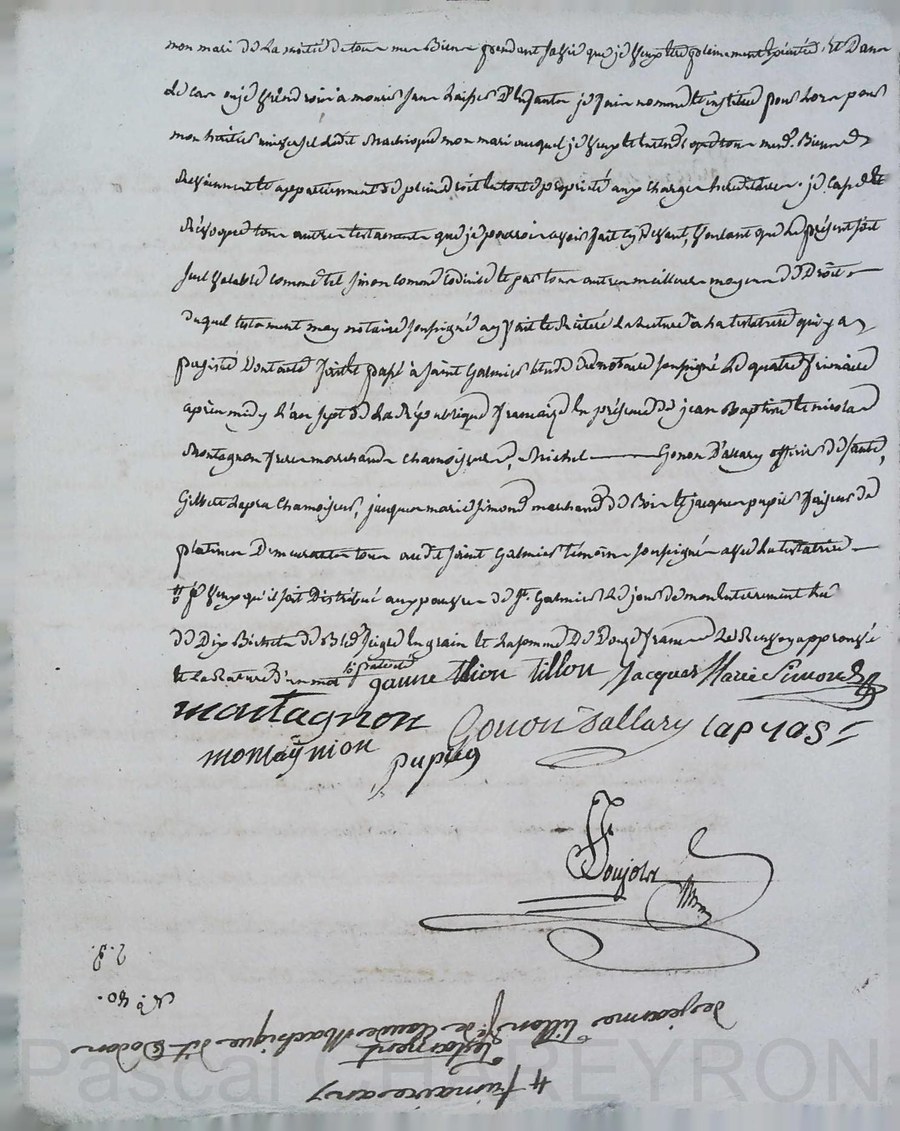 mon mari de la moitié de tous mes Biens pendant sa vie que je veux être pleinement exécutée, Et Dans
le cas ou je viendrois à mourir sans laisser D'Enfants je fais nomme et institue pour lors pour
mon héritier universel ledit Machisque mon mari auquel je veux et entends que tous mesd. Biens
Reviennent et appartiennent de plein droit en toute propriété aux charges héréditaires. je casse et
Révoque tous autres testaments que je pourrois avoir fait cy Devant, Voulant que le présent soit
seul valable comme tel sinon comme codicile et par tous autres meilleurs moyens de Droit
Duquel testament moy notaire soussigné ay fait et Réitéré la lecture à la testatrice qui y a
persisté Dont acte fait et passé à Saint Galmier étude du notaire soussigné Le quatre frimaire
après midy L'an sept de la République française En présence de jean Baptiste et nicolas
Montagnon freres marchands chamoiseurs, Michel Gonon D'allary officier de santé,
Gilbert Lapra Chamoiseur, jacques marie Simond marchand de Bois et jacques pupier faiseur de
platines Demeurants tous audit Saint Galmier témoins soussignés avec la testatrice
je veux qu'il soit Distribué aux pauvres de St. Galmier Le jour de mon enterrement
de Dix Bichets de Bled seigle En grain et la somme De Douze francs Le Renvoy approuvé
et la Rature d'un mot
jeanne thion tillon Jacques Marie Simond
montagnon Gonon Dallary Lapras
montagnion pupier
Boujola
4 frimaire an 7
Testament
De jeanne tillon fe. de Claude Machisque dit Dodon
N.° 40.
Pascal CHAREYRON